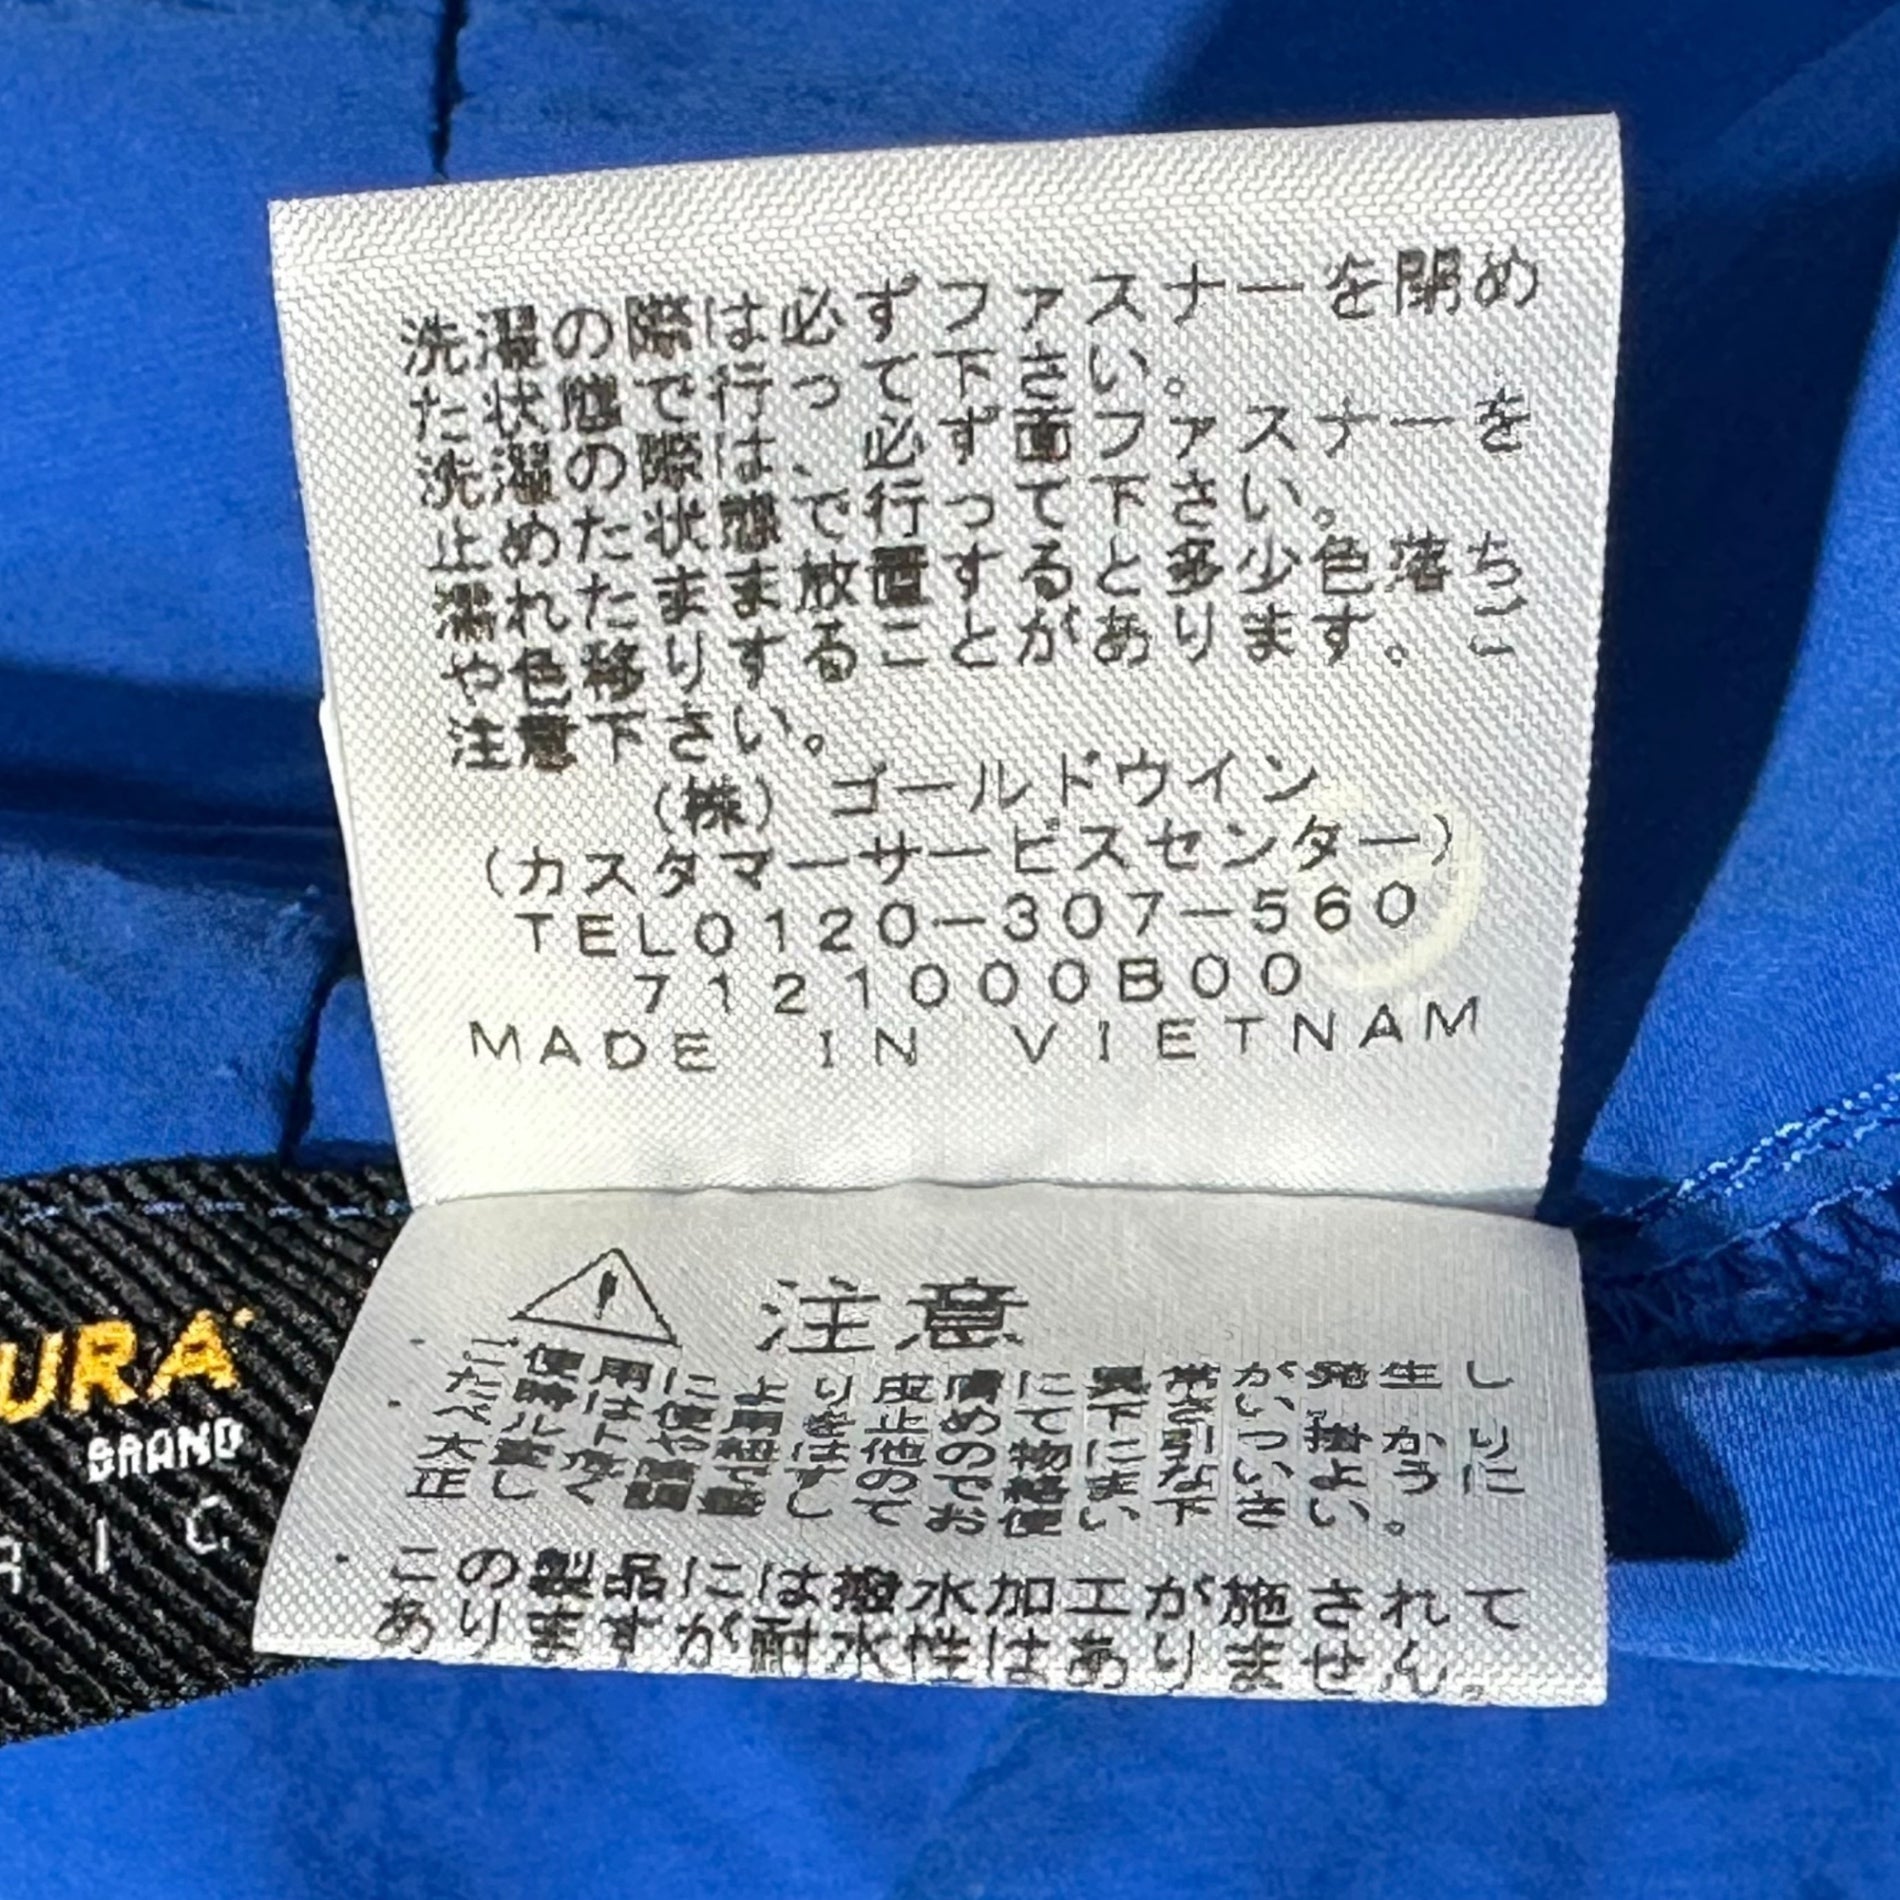 洗濯の際は必ずファスナーを閉め
た状態で行って下さい。
洗濯の際は、必ず面ファスナーを
止めた状態で行って下さい。
濡れたまま放置すると多少色落ち
や色移りすることがあります。ご
注意下さい。
(株) ゴールドウイン
(カスタマーサービスセンター)
TEL0120-307-560
7121000B00
MADE IN VIETNAM
注意
・ご使用により皮膚に異常が発生し
た時は使用を止めて下さい。
・ベルトや紐は他の物に引っ掛かり
大変危
正しく調整してお使い下さい。
・この製品には撥水加工が施されて
ありますが耐水性はありません。
URA
BRAND
RIC